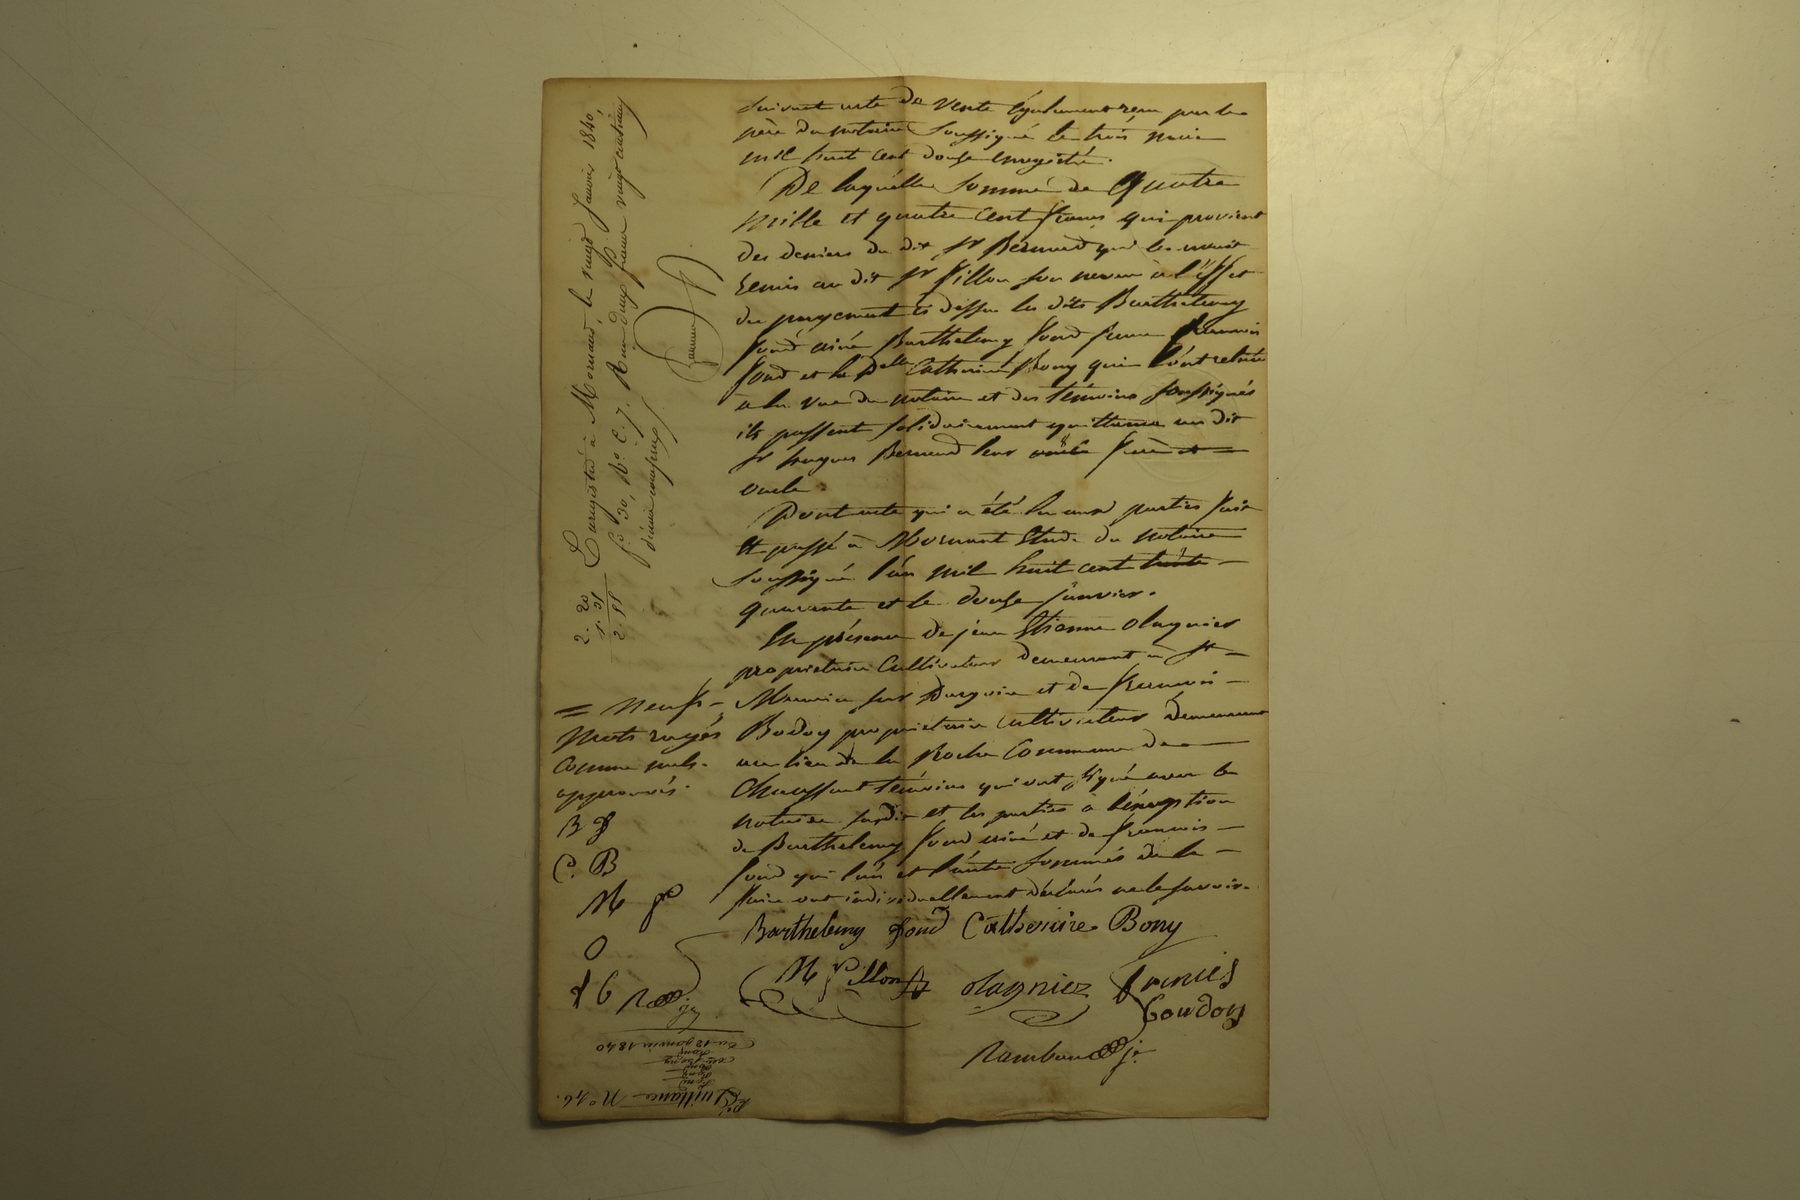 suivant acte de vente également reçu par le
père du notaire soussigné le trois mai
mil huit cent douze enregistré.
De laquelle somme de Quatre
mille et quatre cent francs qui provient
des deniers du dit sr Bernard qui les avait
remis au dit sr Pillon son neveu à l'effet
du payement ci dessus les dits Barthelemy
fond ainé Barthelemy fond jeune francois
fond et la Delle Catherine Bony qui l'ont retirée
a la vue du notaire et des témoins soussignés
ils passent solidairement quittance au dit
sr Bernard leur frère et
oncle
Dont acte qui a été lu aux parties fait
et passé à Mornant Etude du notaire
soussigné l'an mil huit cent trente
quarante et le douze janvier.
En présence de jean Etienne Olagnier
propriétaire Cultivateur demeurant à St
Maurice sur Dargoire et de francois
propriétaire cultivateur demeurant
au lieu de la Roche Commune de
Chaussant témoins qui ont signé avec le
notaire susdit et les parties à l'éxception
de Barthelemy fond ainé et de francois
fond qui l'un et l'autre sommés de le
faire ont individuellement déclarés ne le savoir.
Barthelemy fond Catherine Bony
M Pillon olagniez francies
Goudon
Rambaud je
= Neuf
Mots rayés
comme nuls
approuvés.
B f
C. B
M
O
f G
Enregistré à Mornant, le vingt Janvier 1840,
fo 30, Ro C. 7. Reçu deux francs vingt centimes
décime compris
2. 20
2.
Quittance No 46.
Du 12 janvier 1840